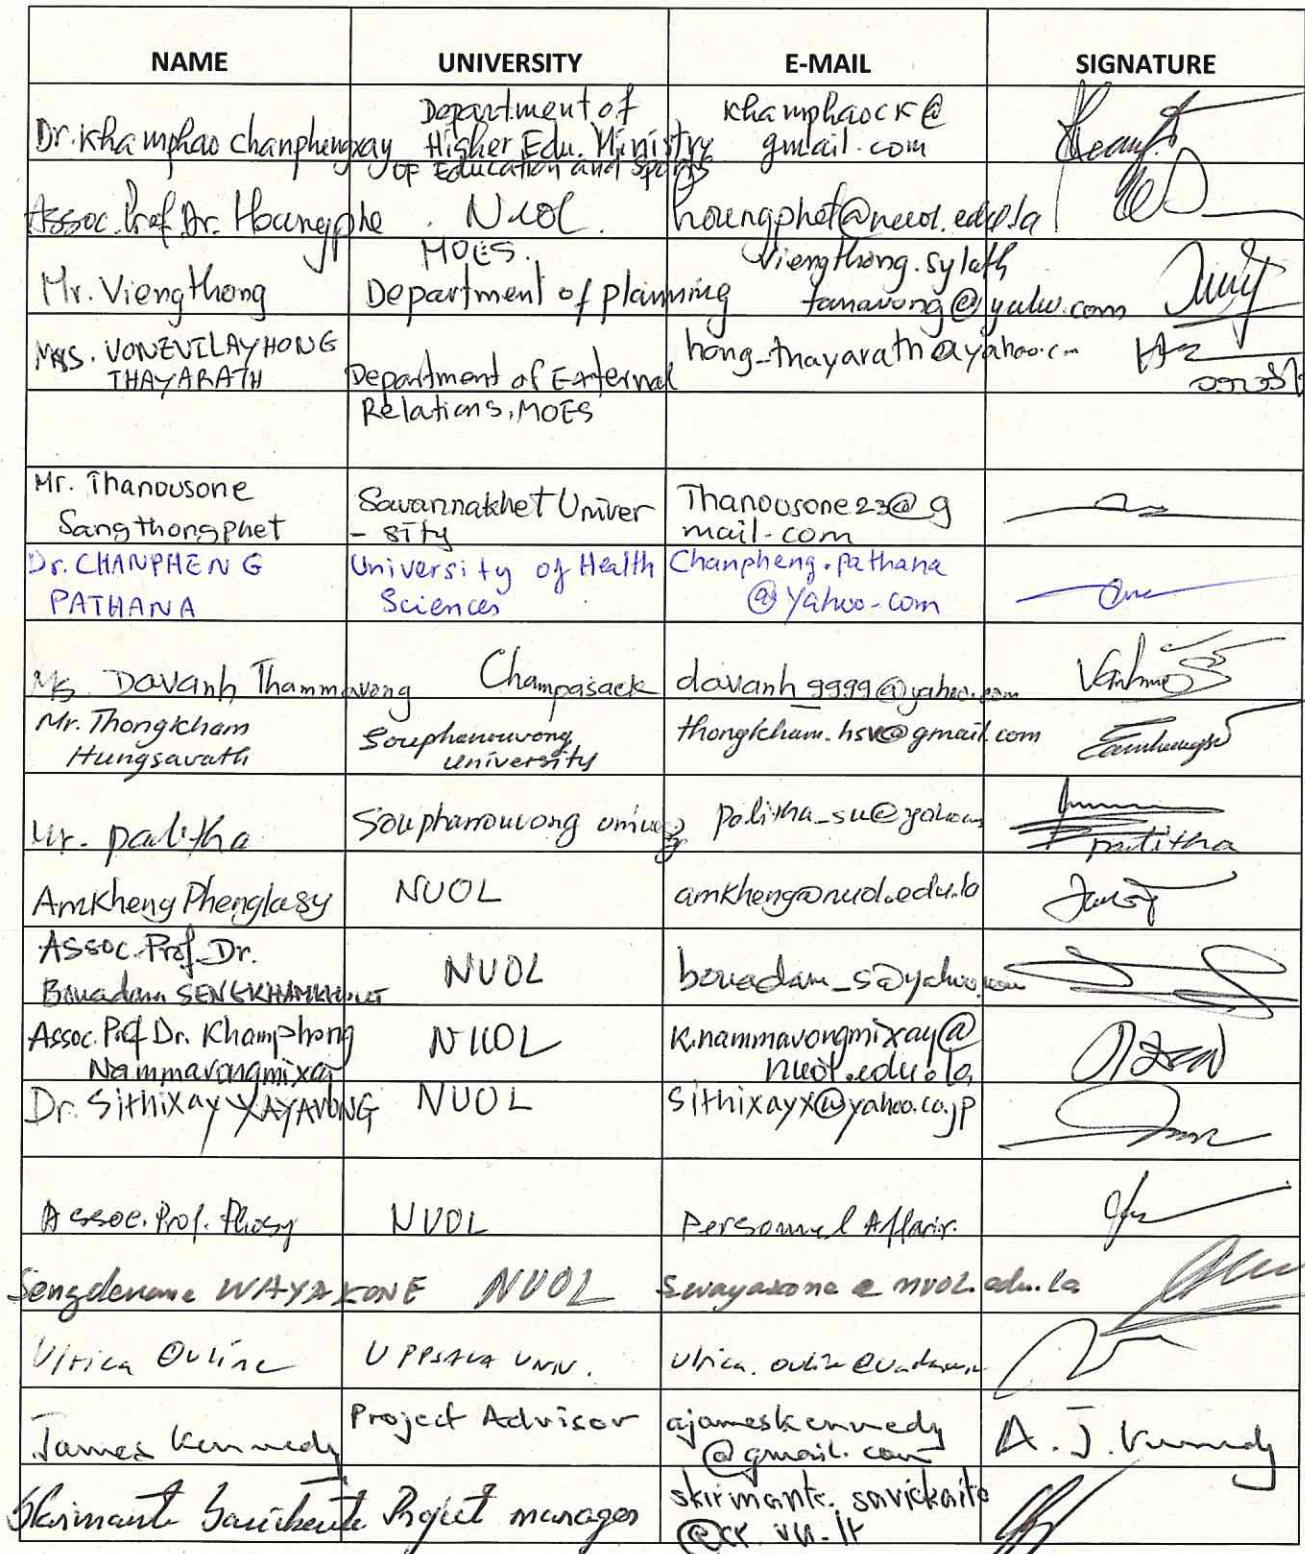 NAME UNIVERSITY E-MAIL SIGNATURE
Dr. Khamphao Chanphengxay
Department of
Higher Edu. Ministry
of Education and Sports
khamphaock@
gmail.com
Assoc. Prof. Dr. Houngphe
NUOL
houngphet@nuol.edu.la
Mr. Viengthong
MOES.
Department of planning
Viengthong.sylath
tanavong@yahoo.com
Mrs. VONEVILAYHONG
THAYARATH
Department of External
Relations, MOES
hong_thayarath@yahoo.c
Mr. Thanousone
Sangthongphet
Savannakhet Univer
- sity
Thanousone23@g
mail.com
Dr. CHANPHENG
PATHANA
University of Health
Sciences
Chanpheng.pathana
@yahoo.com
Ms. Davanh Thammavong
Champasack
davanh_9999@yahoo.com
Mr. Thongkham
Hungsavath
Souphanouvong
university
thongkham.hsv@gmail.com
Mr. palitha
Souphanouvong
palitha_su@yahoo
palitha
Amkheng Phenglasy
NUOL
amkheng@nuol.edu.la
Assoc. Prof. Dr.
Bouadam
NUOL
bouadam_s@yahoo.com
Assoc. Prof Dr. Khamphong
Nammavongmixay
NUOL
K.nammavongmixay@
nuol.edu.la
Dr. Sithixay XAYAVONG
NUOL
Sithixayx@yahoo.co.jp
Assoc. Prof. Phosy
NUOL
Personnel Affair.
Sengdeuane WAYAKONE
NUOL
swayakone@nuol.edu.la
Ulrica Ouline
UPPSALA UNIV.
James Kennedy
Project Advisor
ajameskennedy
@gmail.com
A. J. Kennedy
Skirmantė Savickaitė
Project manager
skirmante.savickaite
@cr.vu.lt